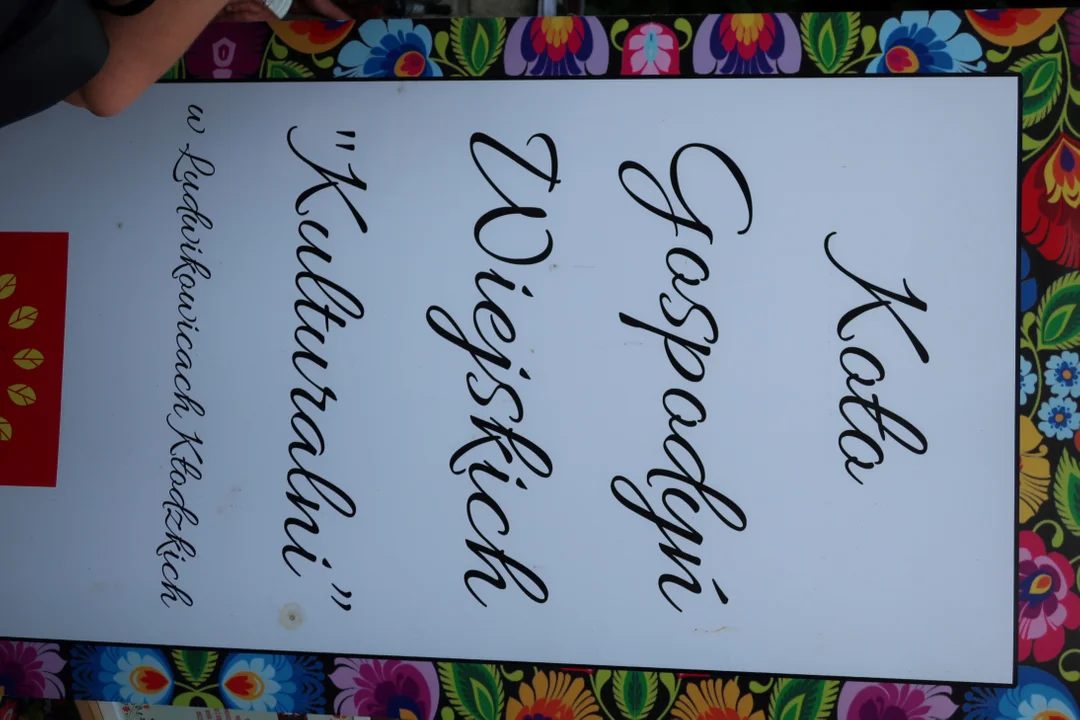 Koło
Gospodyń
Wiejskich
"Kulturalni"
w Ludwikowicach Kłodzkich